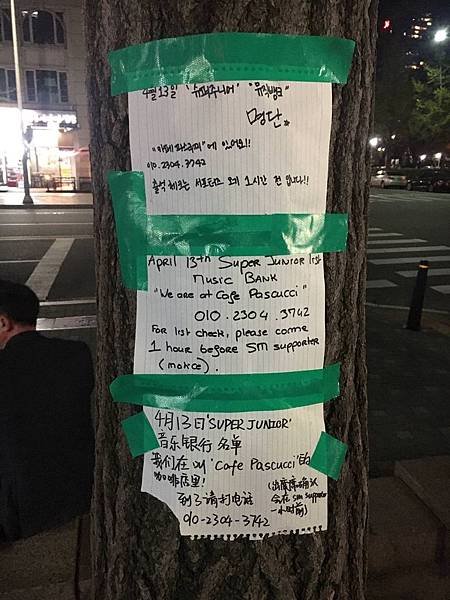 4월 13일 '슈퍼주니어' "뮤직뱅크"
명단
"카페 파스쿠찌"에 있어요!!
010.2304.3742
출석 체크는 서포터즈 오기 1시간 전 입니다!!
April 13th Super Junior list
Music Bank
"We are at Cafe Pascucci"
010.2304.3742
For list check, please come
1 hour before SM supporter
(notice).
4月13日'SUPER JUNIOR'
音乐银行 名单
我们在叫 'Cafe Pascucci'的
咖啡店里!
到了请打电话
010-2304-3742
(出席确认
会在 SM supporter
一小时前)